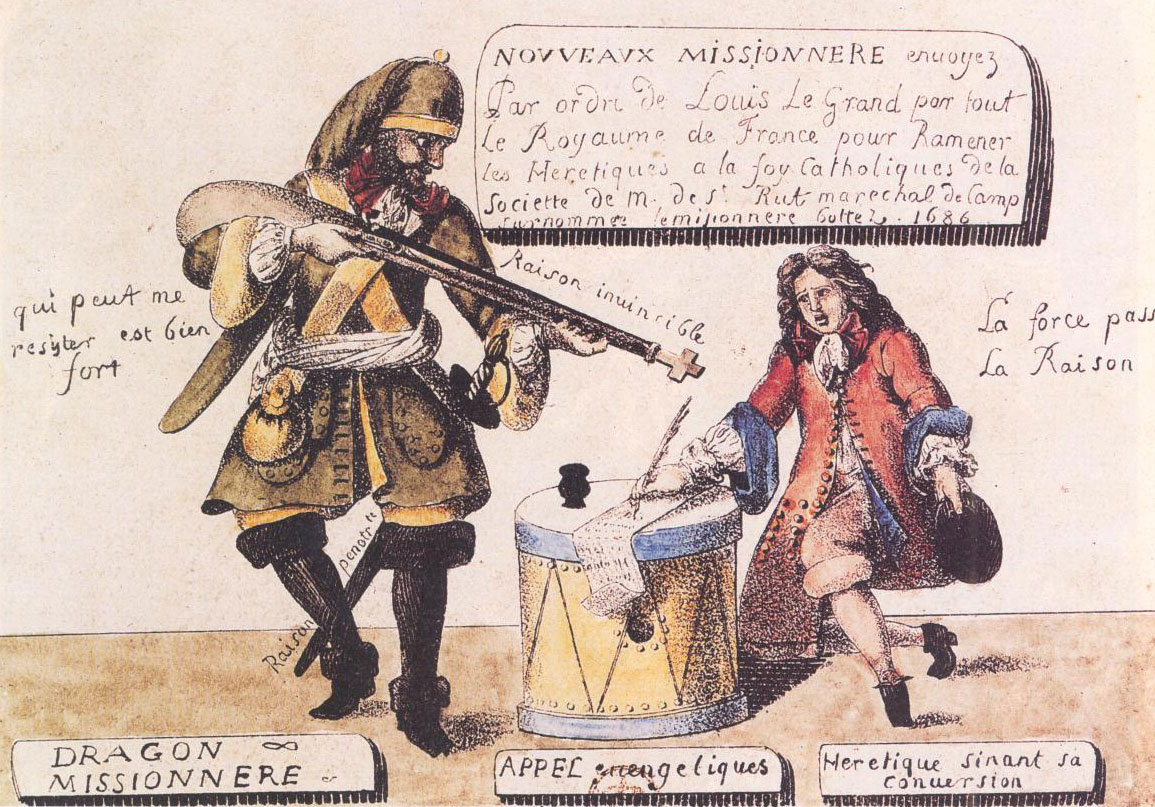 NOUVEAUX MISSIONNERE enuoyez
Par ordre de Louis Le Grand par tout
Le Royaume de France pour Ramener
les Heretiques a la foy Catholiques de la
Societte de M. de St. Rut marechal de Camp
surnommee lemisionnere bottez. 1686
Raison inuinrible
qui peut me
resister est bien
fort
La force pass
La Raison
Raison penetr te
DRAGON
MISSIONNERE
APPEL euengeliques
Heretique sinant sa
Conuersion